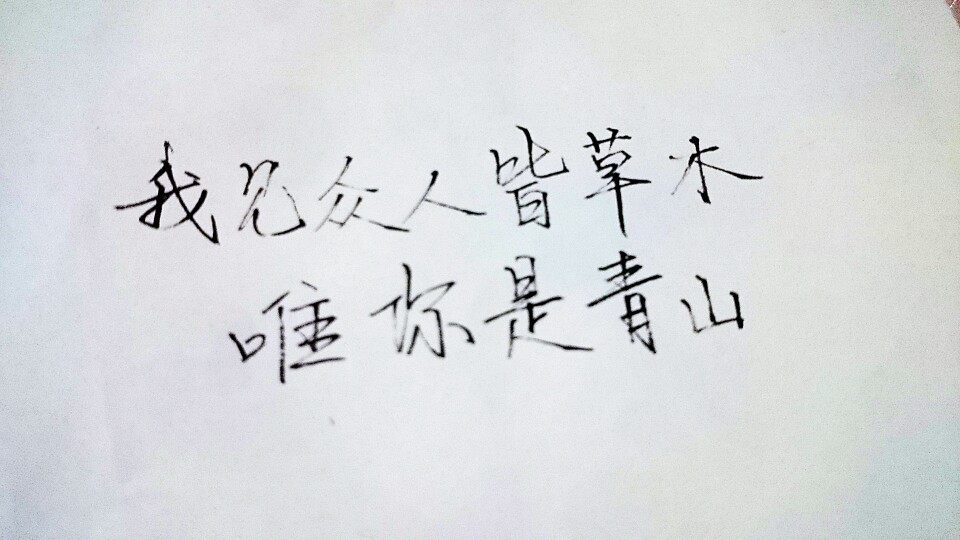 我见众人皆草水
唯你是青山